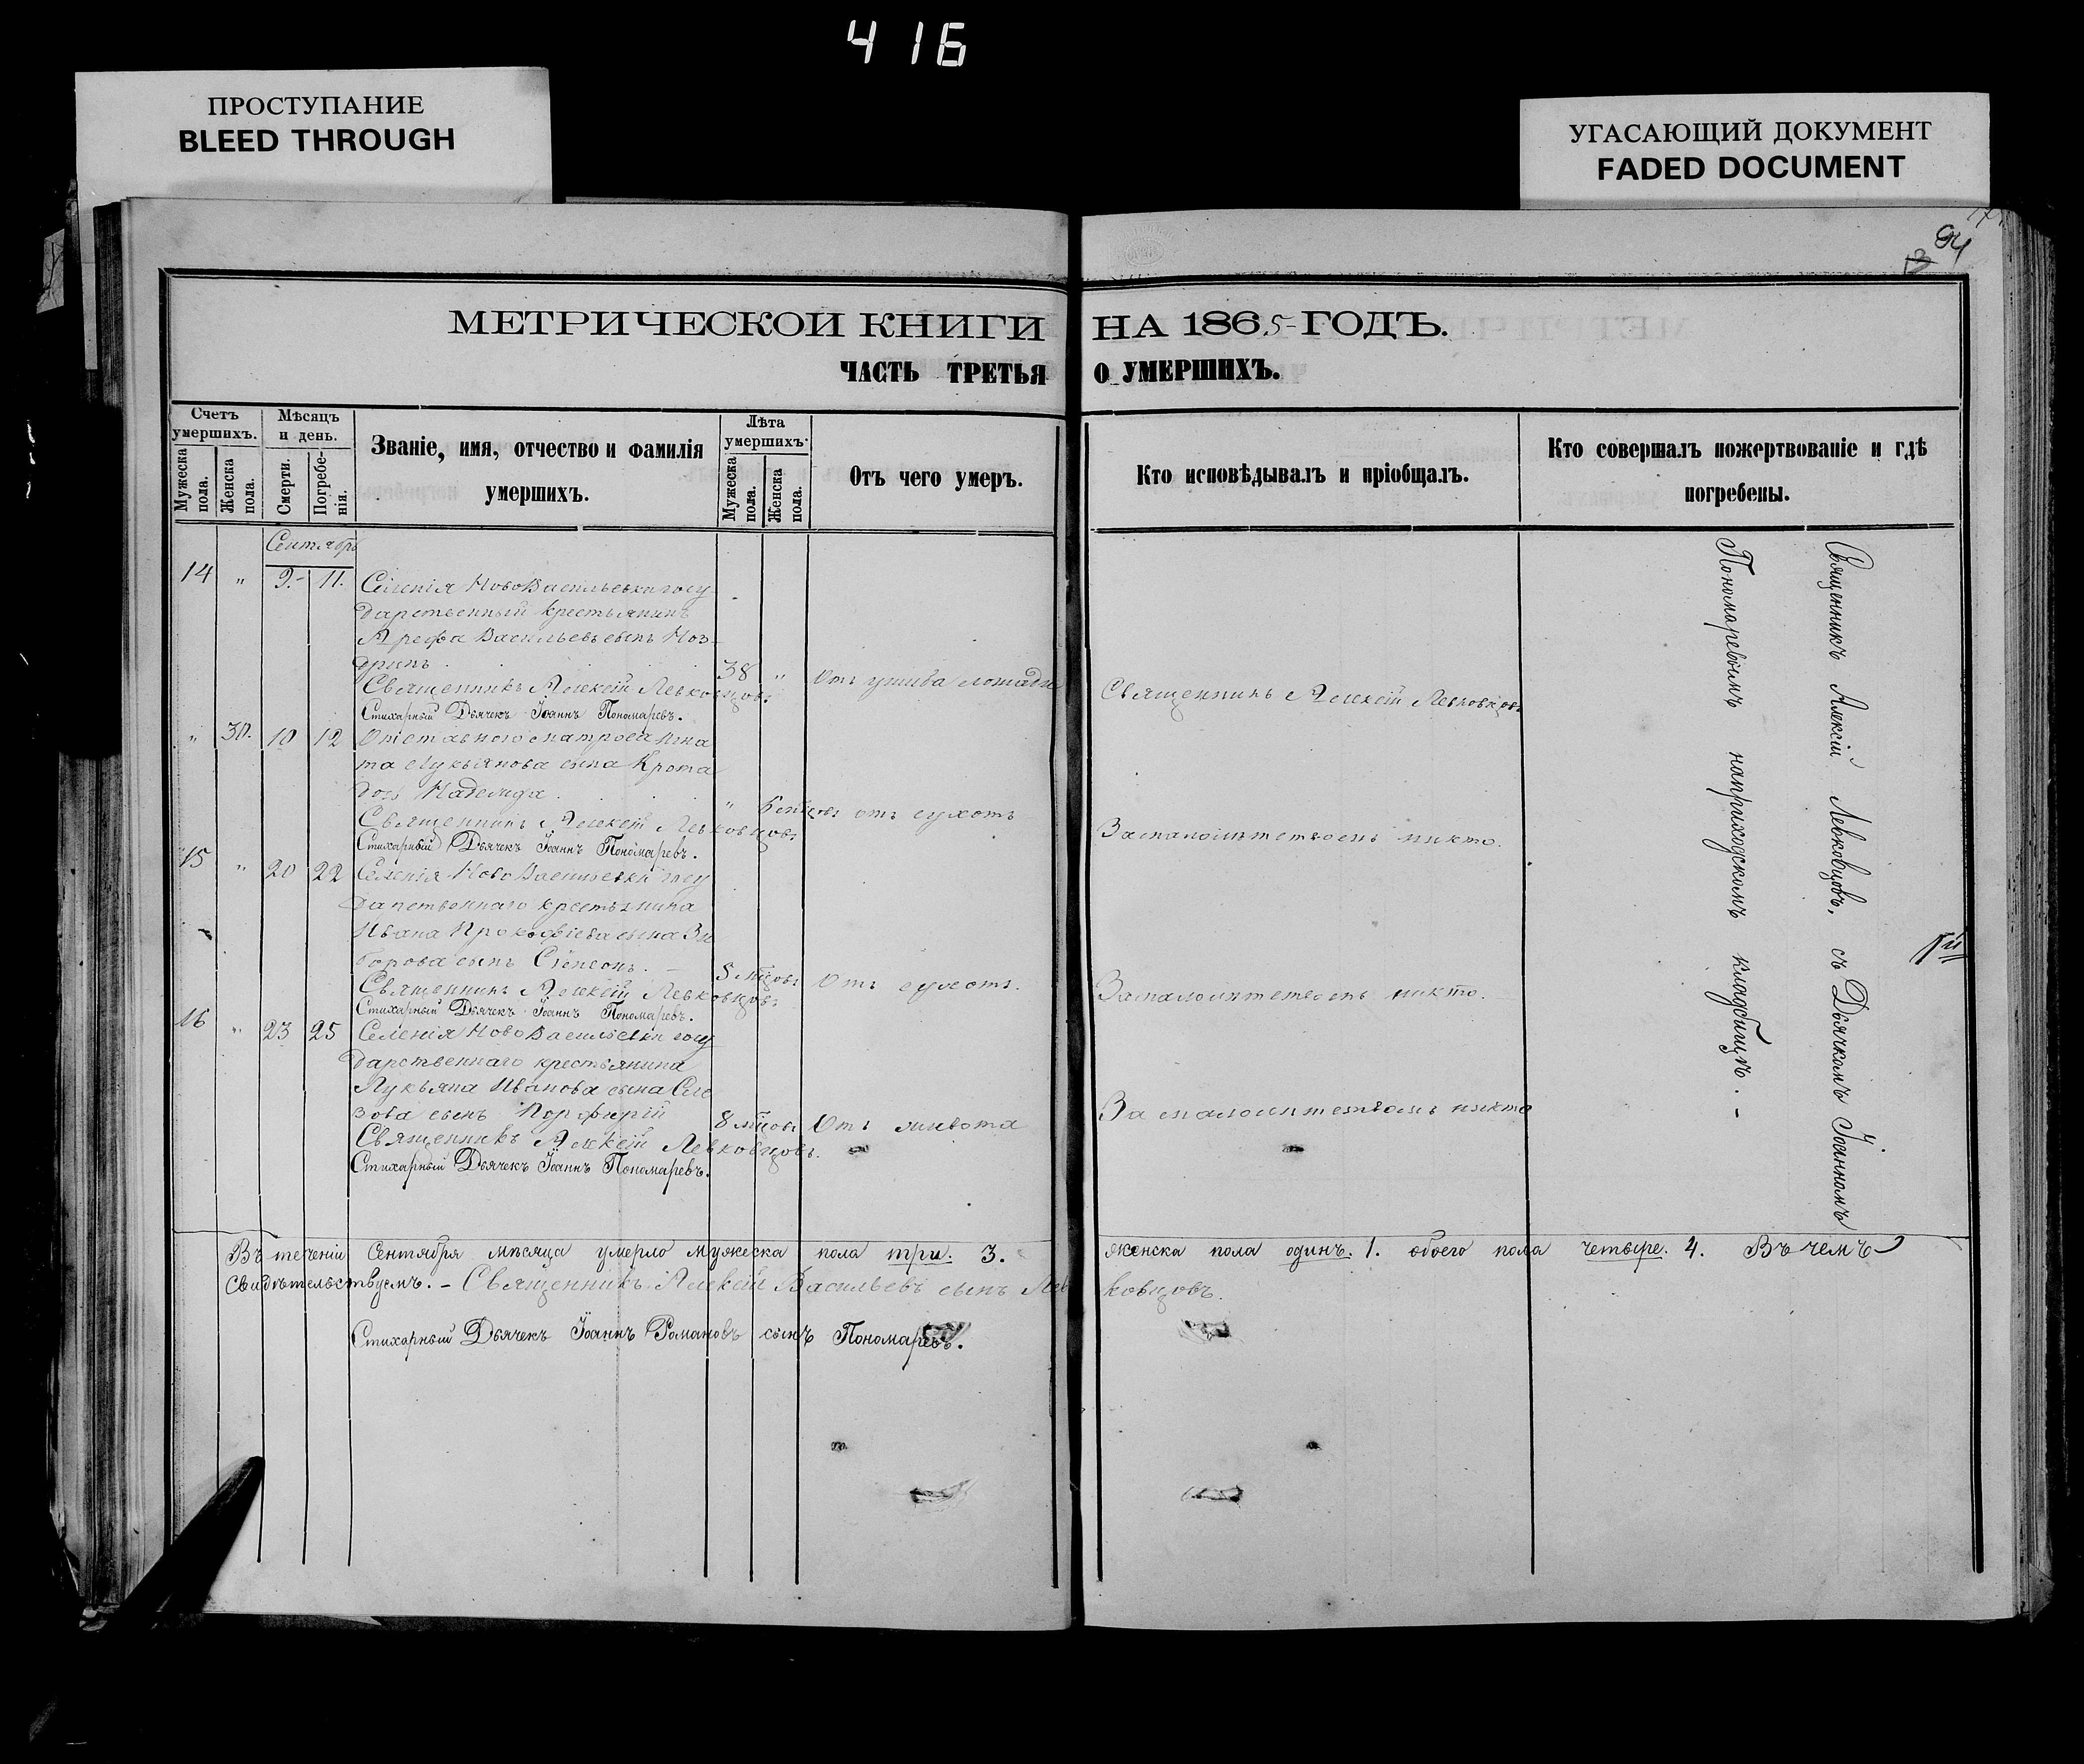 416
ПРОСТУПАНИЕ
BLEED THROUGH
УГАСАЮЩИЙ ДОКУМЕНТ
FADED DOCUMENT
94
МЕТРИЧЕСКОЙ КНИГИ НА 1865 ГОДЪ.
ЧАСТЬ ТРЕТЬЯ О УМЕРШИХЪ.
Счетъ умершихъ.
Мужеска пола.
Женска пола.
Мѣсяцъ и день.
Смерти.
Погребенія.
Званіе, имя, отчество и фамилія умершихъ.
Лѣта умершихъ.
Мужеска пола.
Женска пола.
Отъ чего умеръ.
Кто исповѣдывалъ и пріобщалъ.
Кто совершалъ пожертвованіе и гдѣ погребены.
Сентябрь
14 " 9. 11. Селенія НовоВасильевки госу
дарственный крестьянинъ
Арефа Васильевъ сынъ Ноз
дринъ. 38 " Отъ ушиба лошади
Священникъ Алексій Левковцовъ.
Священникъ Алексій Левковцовъ
Стихарный Дьячекъ Іоаннъ Пономаревъ.
" 30. 10 12 Отставного матроса Игна
та Лукьянова сына Крота
Надежда. " отъ сухотъ
Священникъ Алексій Левковцовъ
За малолѣтствомъ никто.
Стихарный Дьячекъ Іоаннъ Пономаревъ.
15 " 20 22 Селенія НовоВасильевки госу
дарственнаго крестьянина
Ивана Прокофіева сына
сынъ Симеонъ. 8 мѣцовъ Отъ сухотъ.
Священникъ Алексій Левковцовъ
За малолѣтствомъ никто.
Стихарный Дьячекъ Іоаннъ Пономаревъ.
16 " 23 25 Селенія НовоВасильевки госу
дарственнаго крестьянина
Лукьяна Иванова сына
сынъ Порфирій 8 мѣцовъ Отъ живота
За малолѣтствомъ никто
Священникъ Алексій Левковцовъ.
Стихарный Дьячекъ Іоаннъ Пономаревъ.
Священникъ Алексій Левковцовъ, съ Дьячкомъ Іоанномъ
Пономаревымъ наприходскомъ кладбищѣ. –
Въ теченіи Сентября мѣсяца умерло мужеска пола три. 3. женска пола одинъ. 1. обоего пола четыре. 4. Въ чемъ
Свидѣтельствуемъ. – Священникъ Алексій Васильевъ сынъ Левковцовъ.
Стихарный Дьячекъ Іоаннъ Романовъ сынъ Пономаревъ.